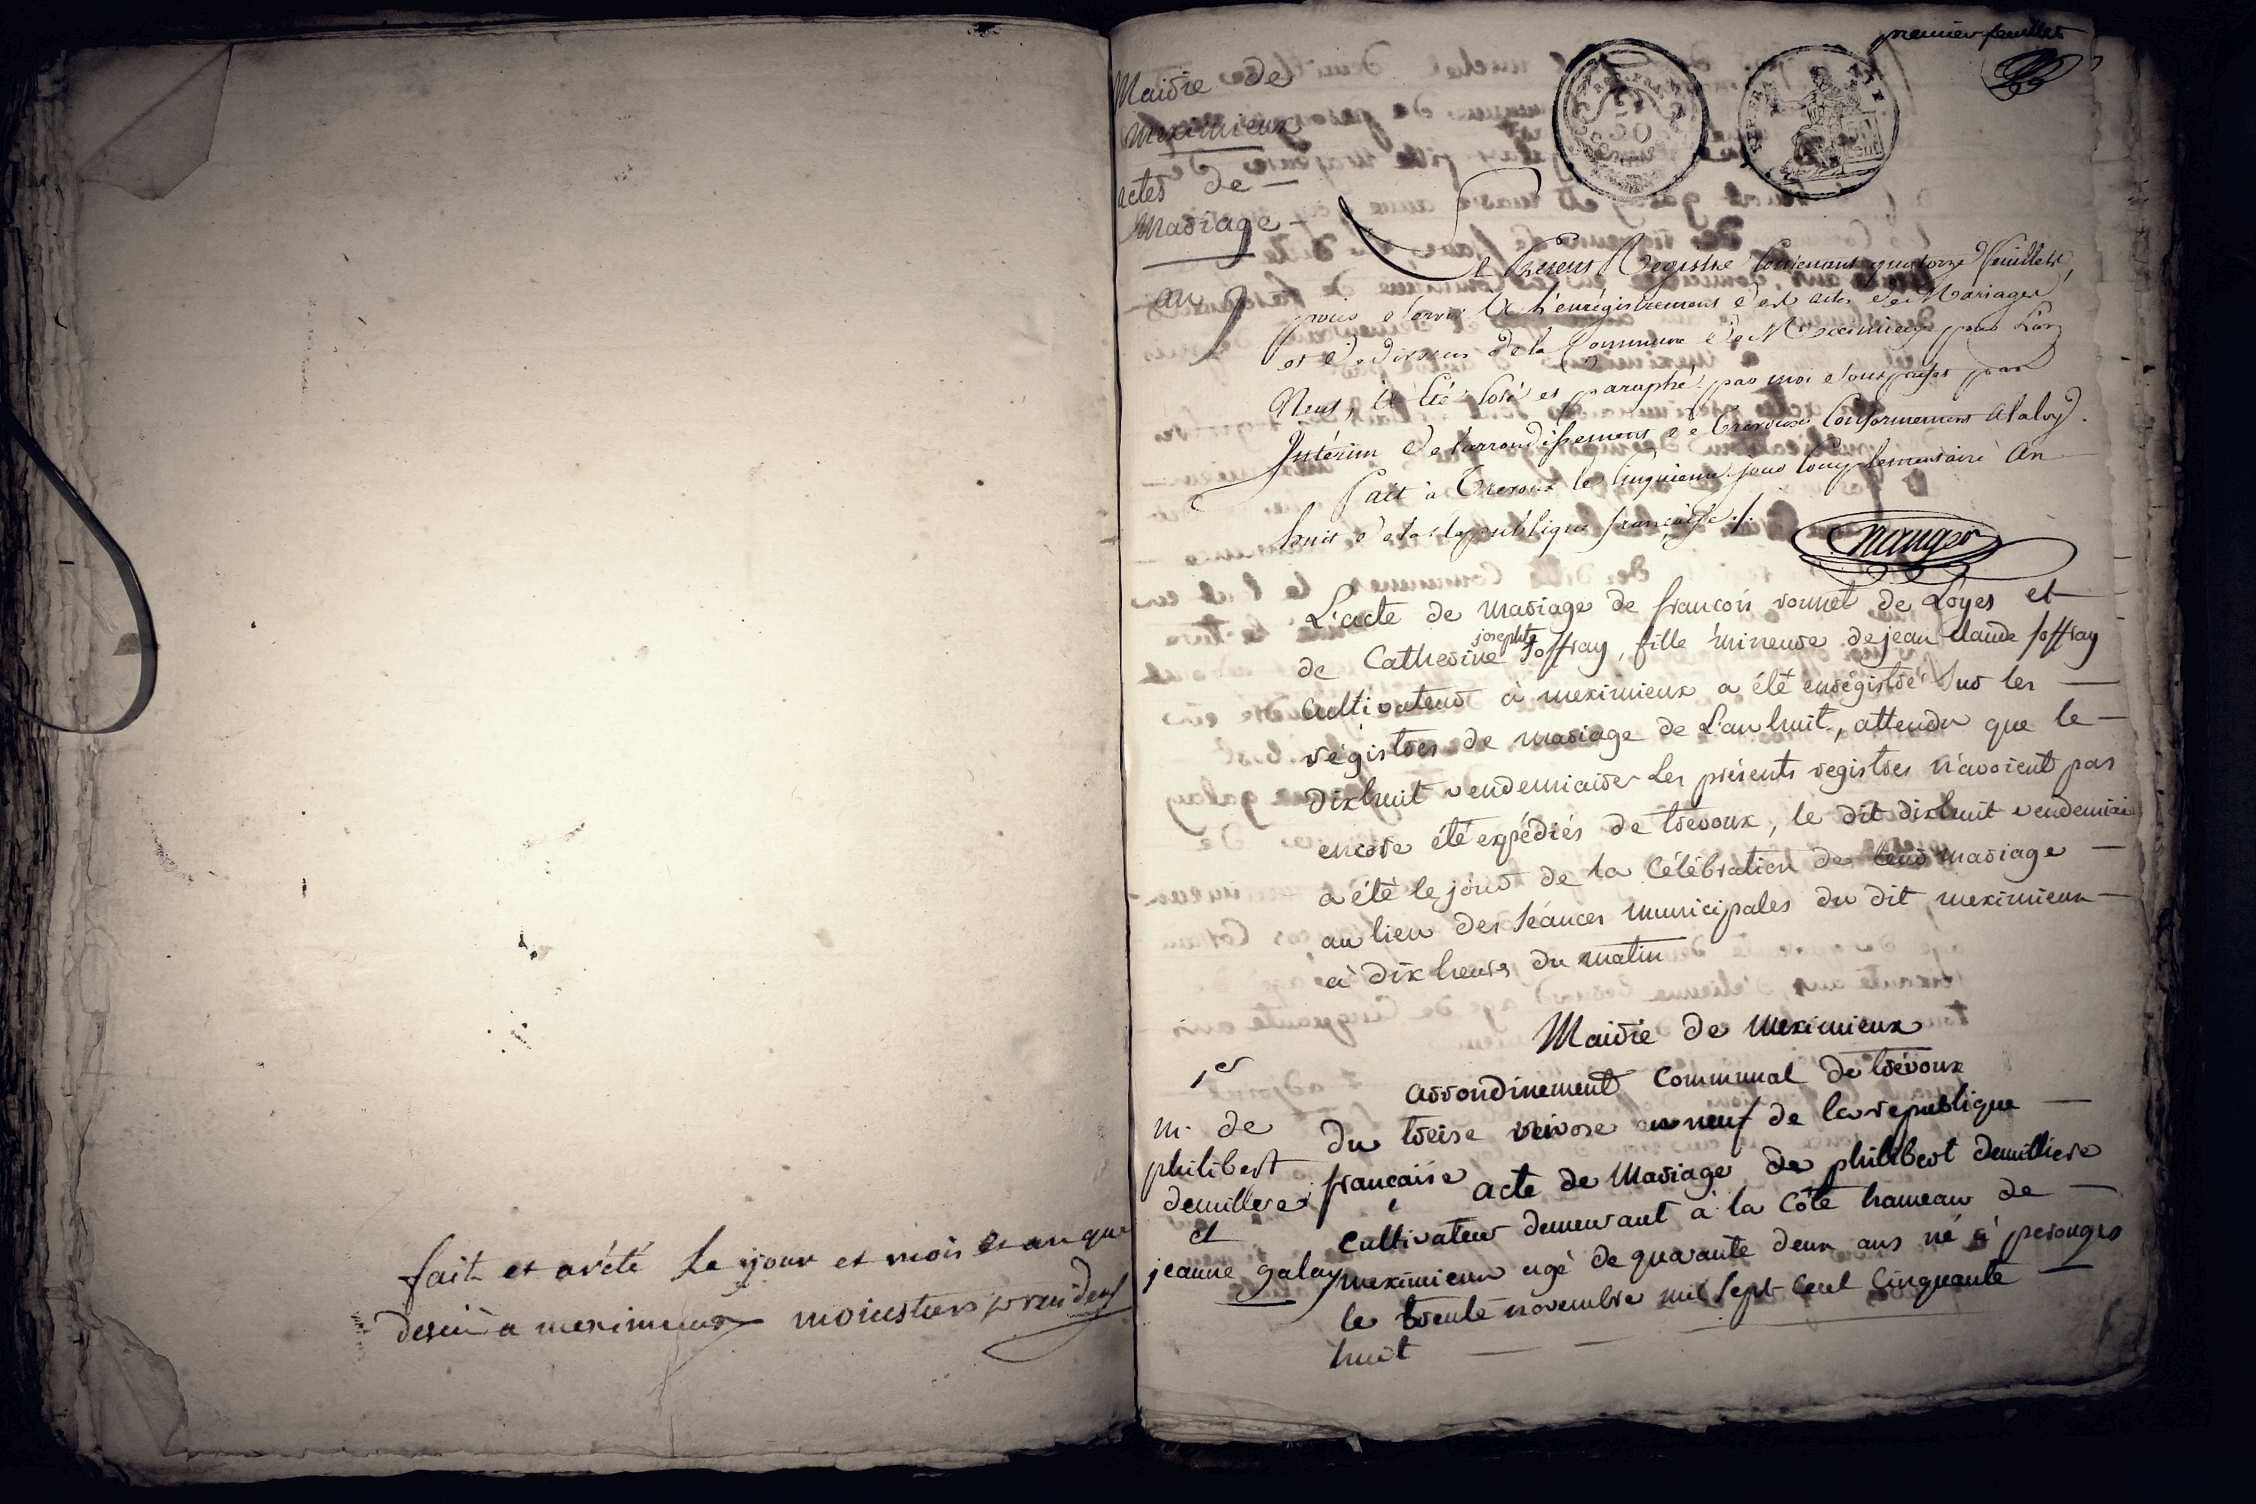 fait et arété Le jour et mois et an que
desus à meximieux moinstiers president
premier feuillet
Mairie de
Meximieux
actes de
Mariage
an 9
Le Present Registre Contenant quatorze feuillets,
pour servir à l'enrégistrement des actes de Mariages
et de divorces de la Commune de Meximieux pour l'an
Neuf, à été Coté et paraphé par moi sous prefet par
Intérim de l'arrondissement de Trevoux Conformement à la loy.
fait à Trevoux le Cinquieme jour Complementaire An
huit de la République française ./.
Nanger
L'acte de mariage de francois vonnet de Loyes et
de Catherine josephte Joffray, fille mineure de jean claude joffray
cultivateur à meximieux a été enrégistré sur les
régistres de mariage de L'an huit, attendu que le
dixhuit vendemiaire Les présents registres n'avoient pas
encore été expédiés de trevoux, le dit dixhuit vendemiaire
a été le jour de la célébration de leur mariage
au lieu des séances municipales du dit meximieux
à dix heures du matin
Mairie de Meximieux
arrondissement Communal de trévoux
1er
m. de
philibert
demillere
et
jeanne galay
du treise nivose an neuf de la republique
francaise acte de Mariage de philibert demilliere
cultivateur demeurant à la Côte hameau de
meximieux agé de quarante deux ans né à perouges
le trente novembre mil sept cent cinquante
huit